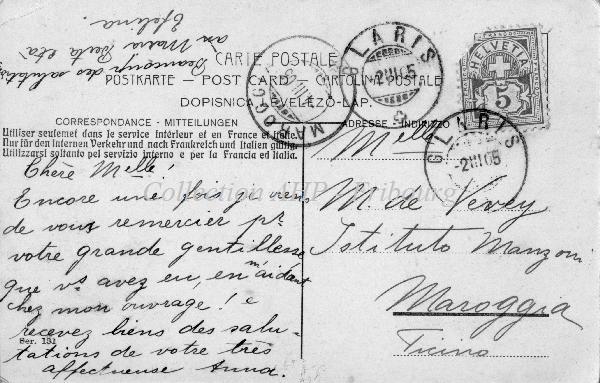 CARTE POSTALE
POSTKARTE – POST CARD – CARTOLINA POSTALE
DOPISNICE – VELEZŐ-LAP.
CORRESPONDANCE - MITTEILUNGEN
ADRESSE INDIRIZZO
Utiliser seulemet dans le service intérieur et en France et Italie.
Nur für den internen Verkehr und nach Frankreich und Italien gültig.
Utilizzarsi soltanto pel servizio interno e per la Francia ed Italia.
Chère Melle!
Encore une fois je viens
de vous remercier pr
votre grande gentillesse
que vs avez eu, en m'aidant
chez mon ouvrage! e
recevez biens des salu-
tations de votre très
affectueuse Anna.
Ser. 131
Beaucoup des salutats
Maria Berta età
Efelina.
Melle
M. de Vevey
Istituto Manzoni
Maroggia
Ticino
HELVETIA
5
GLARIS
2 III 05
GLARIS
-2 III 05
MAROGGIA
Collection AHP - Fribourg